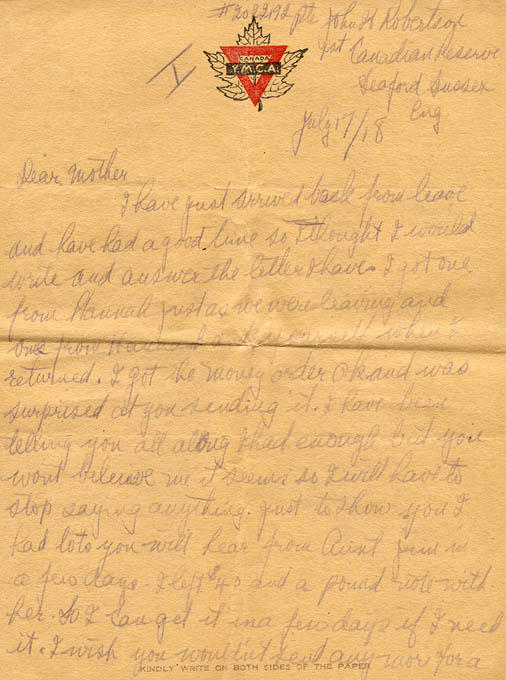 #2022192 Pte John H Robertson
1st Canadian Reserve
Seaford Sussex
Eng
CANADA
Y.M.C.A.
I
July 17/18
Dear Mother
I have just arrived back from leave
and have had a good time so I thought I would
write and answer the letters I have. I got one
from Hannah just as we were leaving and
one from Hannah and yourself when I
returned. I got the money order Ok and was
surprised at you sending it. I have been
telling you all along I had enough but you
wont beleive me it seems so I will have to
stop saying anything. just to show you I
had lots you will hear from Aunt Jim in
a few days. I left $40 and a pound note with
her. So I can get it in a few days if I need
it. I wish you wouldn't send any more for a
KINDLY WRITE ON BOTH SIDES OF THE PAPER